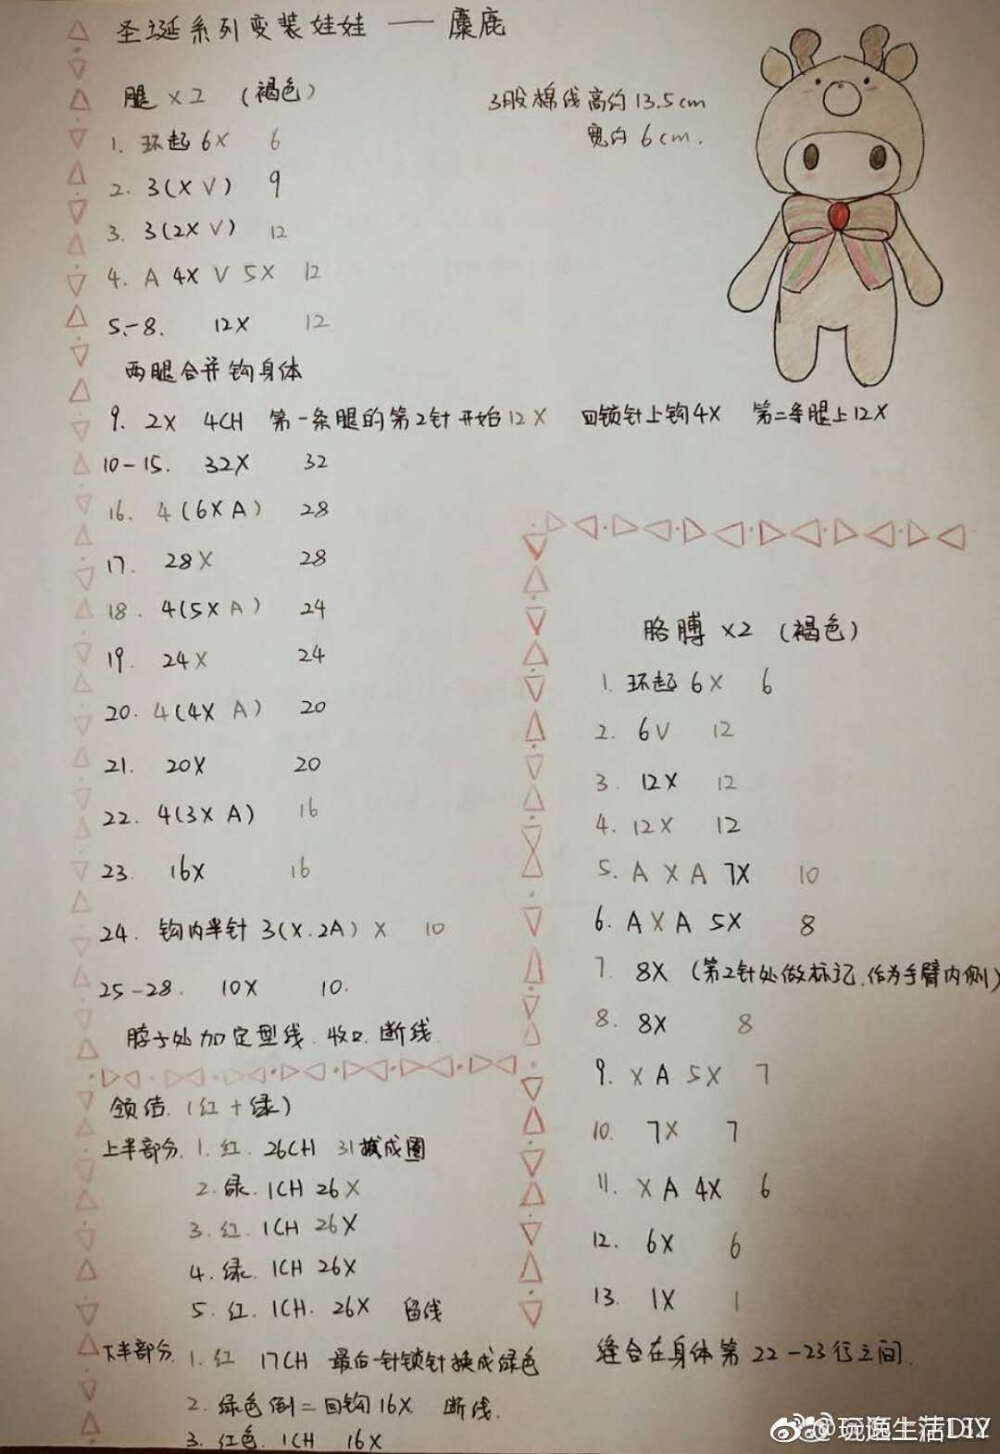 圣诞系列变装娃娃 —— 麋鹿
腿 ×2 (褐色)
3股棉线高约13.5cm
宽约6cm.
1. 环起6X 6
2. 3(X V) 9
3. 3(2X V) 12
4. A 4X V 5X 12
5.-8. 12X 12
两腿合并钩身体
9. 2X 4CH 第一条腿的第2针开始12X 回锁针上钩4X 第二条腿上12X
10-15. 32X 32
16. 4(6X A) 28
17. 28X 28
18. 4(5X A) 24
19. 24X 24
20. 4(4X A) 20
21. 20X 20
22. 4(3X A) 16
23. 16X 16
24. 钩内半针 3(X.2A) X 10
25-28. 10X 10.
脖子处加定型线.收口.断线
领结.(红+绿)
上半部分. 1.红. 26CH 引拔成圈
2.绿. 1CH 26X
3.红. 1CH 26X
4.绿. 1CH 26X
5.红. 1CH. 26X 留线
下半部分. 1.红 17CH 最后一针锁针换成绿色
2.绿色倒=回钩16X 断线.
3.红色. 1CH 16X
胳膊 ×2 (褐色)
1. 环起 6X 6
2. 6V 12
3. 12X 12
4. 12X 12
5. A X A 7X 10
6. A X A 5X 8
7. 8X (第2针处做标记.作为手臂内侧)
8. 8X 8
9. X A 5X 7
10. 7X 7
11. X A 4X 6
12. 6X 6
13. 1X 1
缝合在身体第22-23行之间.
@玩逸生活DIY